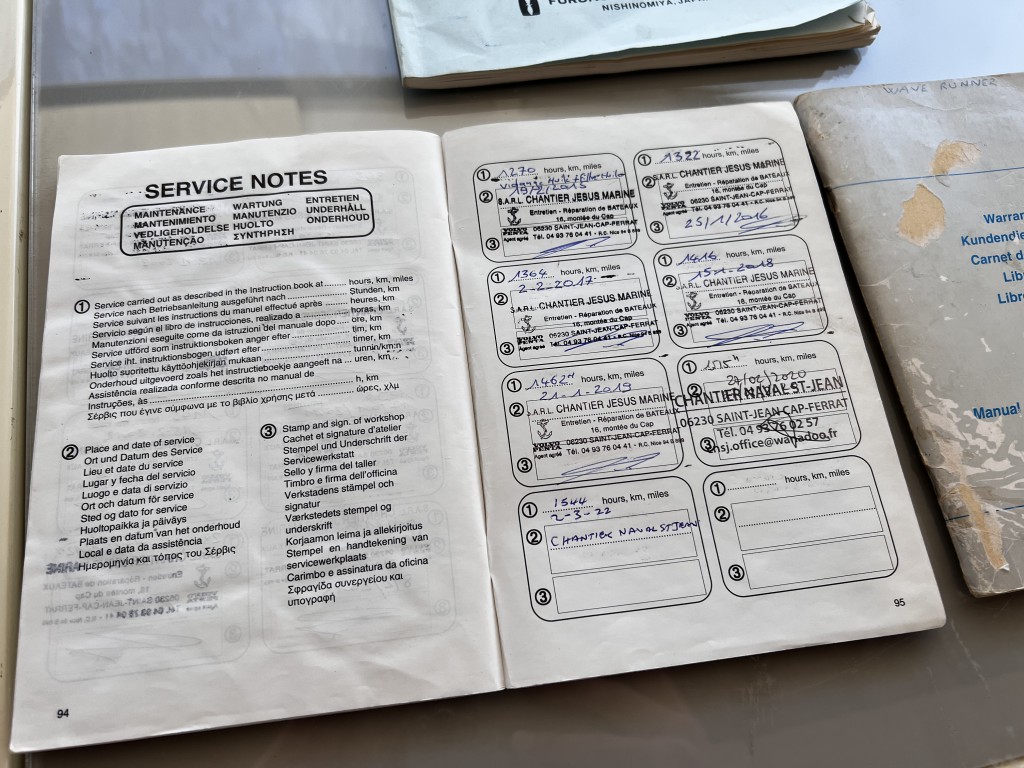 NISHINOMIYA, JAPA
WAVE RUNNER
Warran
Kundendie
Carnet d
Lib
Libre
Manual
SERVICE NOTES
MAINTENANCE WARTUNG ENTRETIEN
MANTENIMIENTO MANUTENZIO UNDERHÅLL
VEDLIGEHOLDELSE HUOLTO ONDERHOUD
MANUTENÇÃO ΣΥΝΤΗΡΗΣΗ
① Service carried out as described in the Instruction book at ......... hours, km, miles
Service nach Betriebsanleitung ausgeführt nach ......... Stunden, km
Service suivant les instructions du manuel effectué après ......... heures, km
Servicio según el libro de instrucciones, realizado a ......... horas, km
Manutenzioni eseguite come da istruzioni del manuale dopo ..... ore, km
Service utförd som instruktionsboken anger efter ......... tim, km
Service iht. instruktionsbogen udført efter ......... timer, km
Huolto suoritettu käyttöohjekirjan mukaan ......... tunnin/km:n
Onderhoud uitgevoerd zoals het instructieboekje aangeeft na ... uren, km
Assistência realizada conforme descrita no manual de
Instruções, às ......... h, km
Σέρβις που έγινε σύμφωνα με το βιβλίο χρήσης μετά ......... ώρες, χλμ
② Place and date of service
Ort und Datum des Service
Lieu et date du service
Lugar y fecha del servicio
Luogo e data di servizio
Ort och datum för service
Sted og dato for service
Huoltopaikka ja päiväys
Plaats en datum van het onderhoud
Local e data da assistência
Ημερομηνία και τόπος του Σέρβις
③ Stamp and sign. of workshop
Cachet et signature d'atelier
Stempel und Underschrift der
Servicewerkstatt
Sello y firma del taller
Timbro e firma dell'officina
Verkstadens stämpel och
signatur
Værkstedets stempel og
underskrift
Korjaamon leima ja allekirjoitus
Stempel en handtekening van
servicewerkplaats
Carimbo e assinatura da oficina
Σφραγίδα συνεργείου και
υπογραφή
94
① 1270 hours, km, miles
②
S.A.R.L. CHANTIER JESUS MARINE
Entretien - Réparation de BATEAUX
16, montée du Cap
06230 SAINT-JEAN-CAP-FERRAT
③ Agent agréé Tél. 04 93 76 04 41 - R.C. Nice
① 1322 hours, km, miles
② S.A.R.L. CHANTIER JESUS MARINE
Entretien - Réparation de BATEAUX
16, montée du Cap
06230 SAINT-JEAN-CAP-FERRAT
Agent agréé Tél. 04 93 76 04 41 - R.C. Nice
③ 25/1/2016
① 1364 hours, km, miles
2-2-2017
② S.A.R.L. CHANTIER JESUS MARINE
Entretien - Réparation de BATEAUX
16, montée du Cap
06230 SAINT-JEAN-CAP-FERRAT
③ Agent agréé Tél. 04 93 76 04 41 - R.C. Nice
① 1416 hours, km, miles
15-1-2018
② S.A.R.L. CHANTIER JESUS MARINE
Entretien - Réparation de BATEAUX
16, montée du Cap
06230 SAINT-JEAN-CAP-FERRAT
③ Agent agréé Tél. 04 93 76 04 41 - R.C. Nice
① 1462H hours, km, miles
21-1-2019
② S.A.R.L. CHANTIER JESUS MARINE
Entretien - Réparation de BATEAUX
16, montée du Cap
06230 SAINT-JEAN-CAP-FERRAT
③ Agent agréé Tél. 04 93 76 04 41 - R.C. Nice
① 1515 H hours, km, miles
② 27/02/2020
CHANTIER NAVAL ST-JEAN
06230 SAINT-JEAN-CAP-FERRAT
③ Tél. 04 93 76 02 57
cnsj.office@wanadoo.fr
① 1544 hours, km, miles
2-3-22
② CHANTIER NAVAL ST JEAN
③
① ......... hours, km, miles
②
③
95